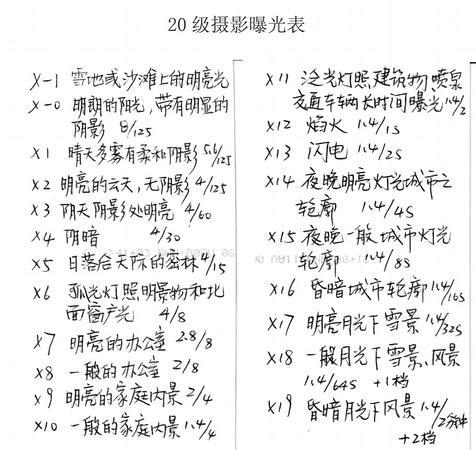 20级摄影曝光表
X-1 雪地或沙滩上的明亮光
X-0 明朗的阳光，带有明显的
阴影 8/125
X1 晴天多雾有柔和阴影 5.6/125
X2 明亮的云天，无阴影 4/125
X3 阴天阴影处明亮 4/60
X4 阴暗 4/30
X5 日落后天际的密林 4/15
X6 弧光灯照明景物和北
面窗户光 4/8
X7 明亮的办公室 2.8/8
X8 一般的办公室 2/8
X9 明亮的家庭内景 2/4
X10 一般的家庭内景 1.4/4
X11 泛光灯照建筑物，喷泉
交通车辆长时间曝光 1.4/2
X12 焰火 1.4/1S
X13 闪电 1.4/2S
X14 夜晚明亮灯光城市之
轮廓 1.4/4S
X15 夜晚一般城市灯光
轮廓 1.4/8S
X16 昏暗城市轮廓 1.4/16S
X17 明亮月光下雪景 1.4/32S
X18 一般月光下雪景、风景
1.4/64S +1档
X19 昏暗月光下风景 1.4/2分钟
+2档